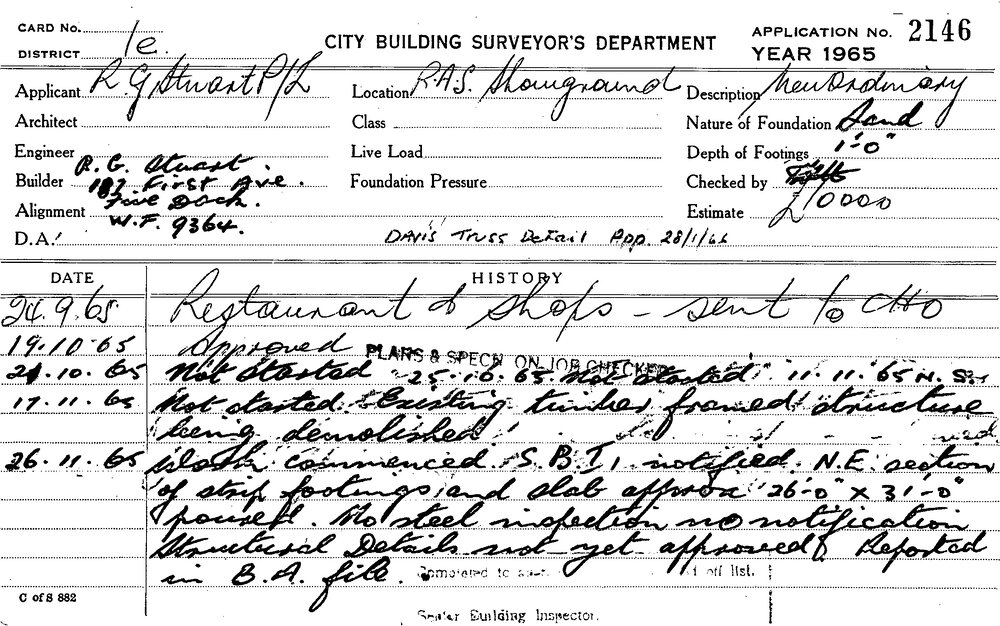 CARD No.
DISTRICT 1e.
CITY BUILDING SURVEYOR'S DEPARTMENT
APPLICATION No. 2146
YEAR 1965
Applicant R G Stuart P/L
Location R.A.S. Showground
Description New Ordinary
Architect
Class
Nature of Foundation Sand
Engineer
Live Load
Depth of Footings 1'-0"
Builder R.G. Stuart.
187 First Ave.
Five Dock.
W.F. 9364.
Foundation Pressure
Checked by
Alignment
Estimate £10000
D.A.
DAVIS Truss Detail App. 28/1/66
DATE HISTORY
24.9.65 Restaurant & Shops - sent to CHO
19.10.65 Approved
PLANS & SPECN. ON JOB CHECKED
21.10.65 Not Started 25.10.65 Not started. 11.11.65 N.S.
17.11.65 Not started. Existing timber framed structure
being demolished
26.11.65 Work commenced. S.B.I. notified. N.E. section
of strip footings and slab approx 26'-0" x 31'-0"
poured. No steel inspection no notification
Structural Details not yet approved. Reported
in B.A. file.
Completed to off list.
C of S 882
Senior Building Inspector.